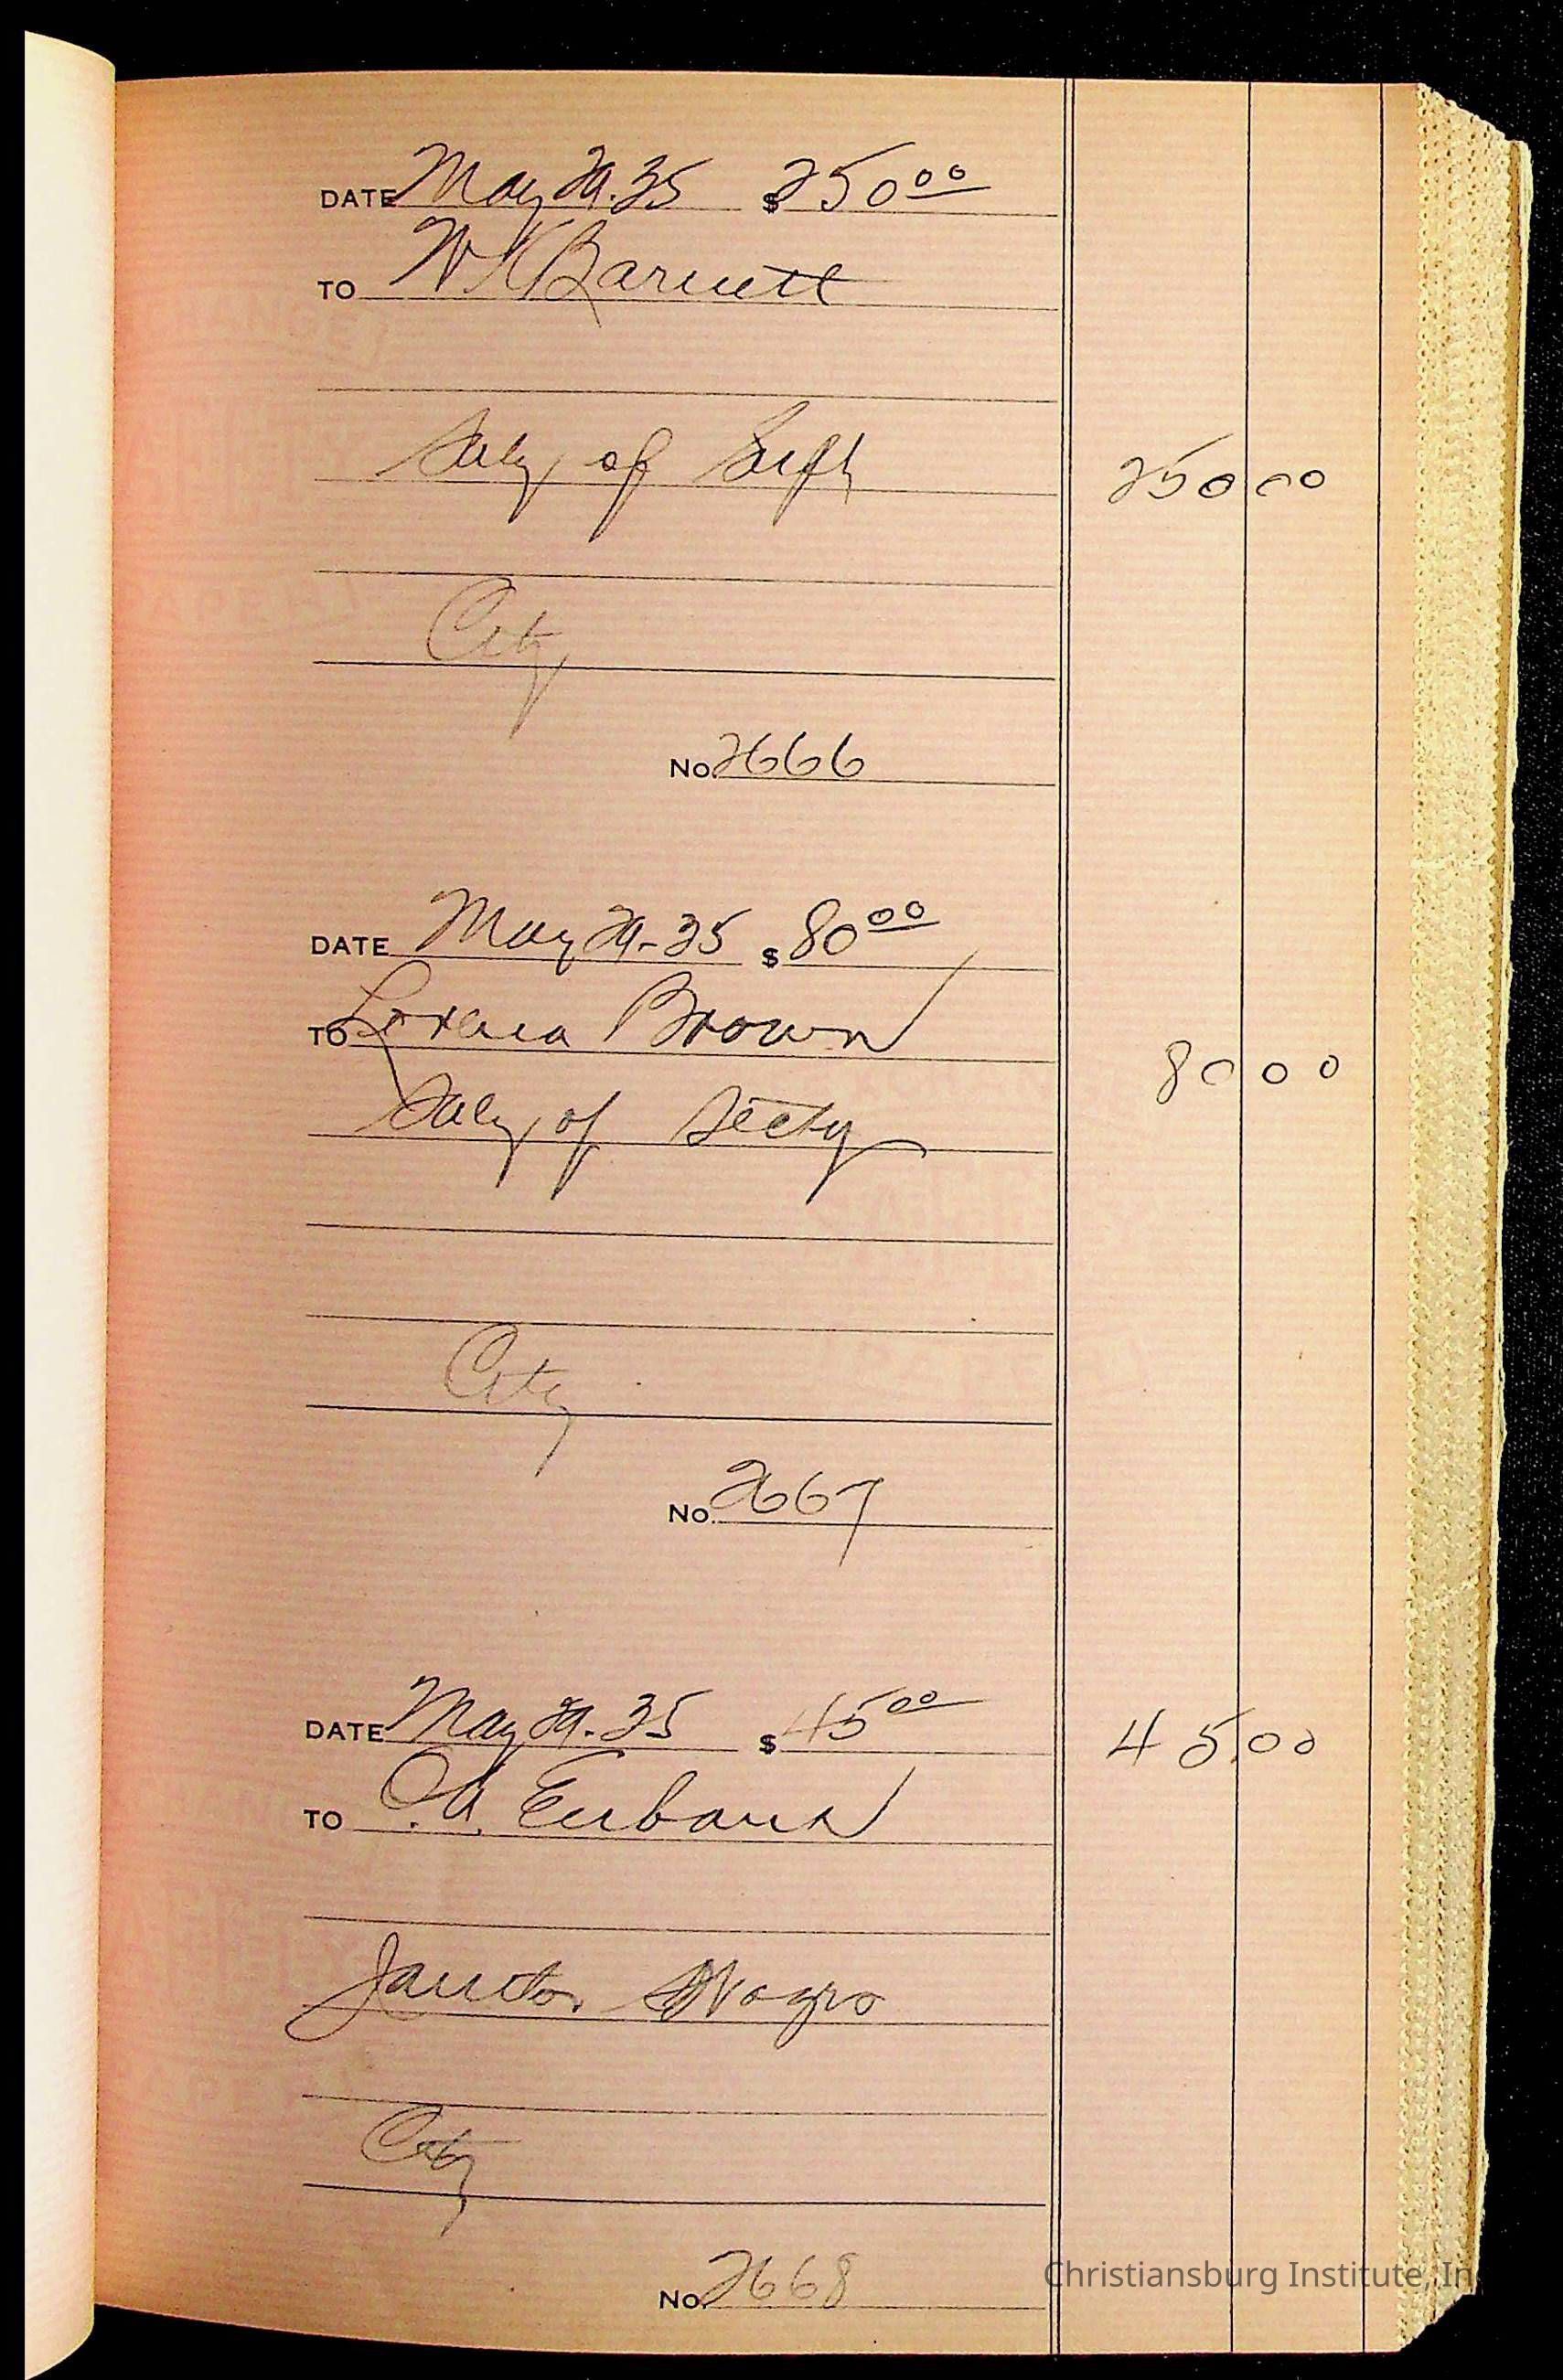 DATE May 29. 35 $ 250 00
TO W K Barnett
Saly of Supt 250 00
City
No. 2666
DATE May 29-35 $ 80 00
TO Lorena Brown
80 00
Saly of Secty
City
No. 2667
DATE May 29. 35 $ 45 00 45.00
TO C. A. Eubank
Janitor Negro
City
No. 2668
Christiansburg Institute, In